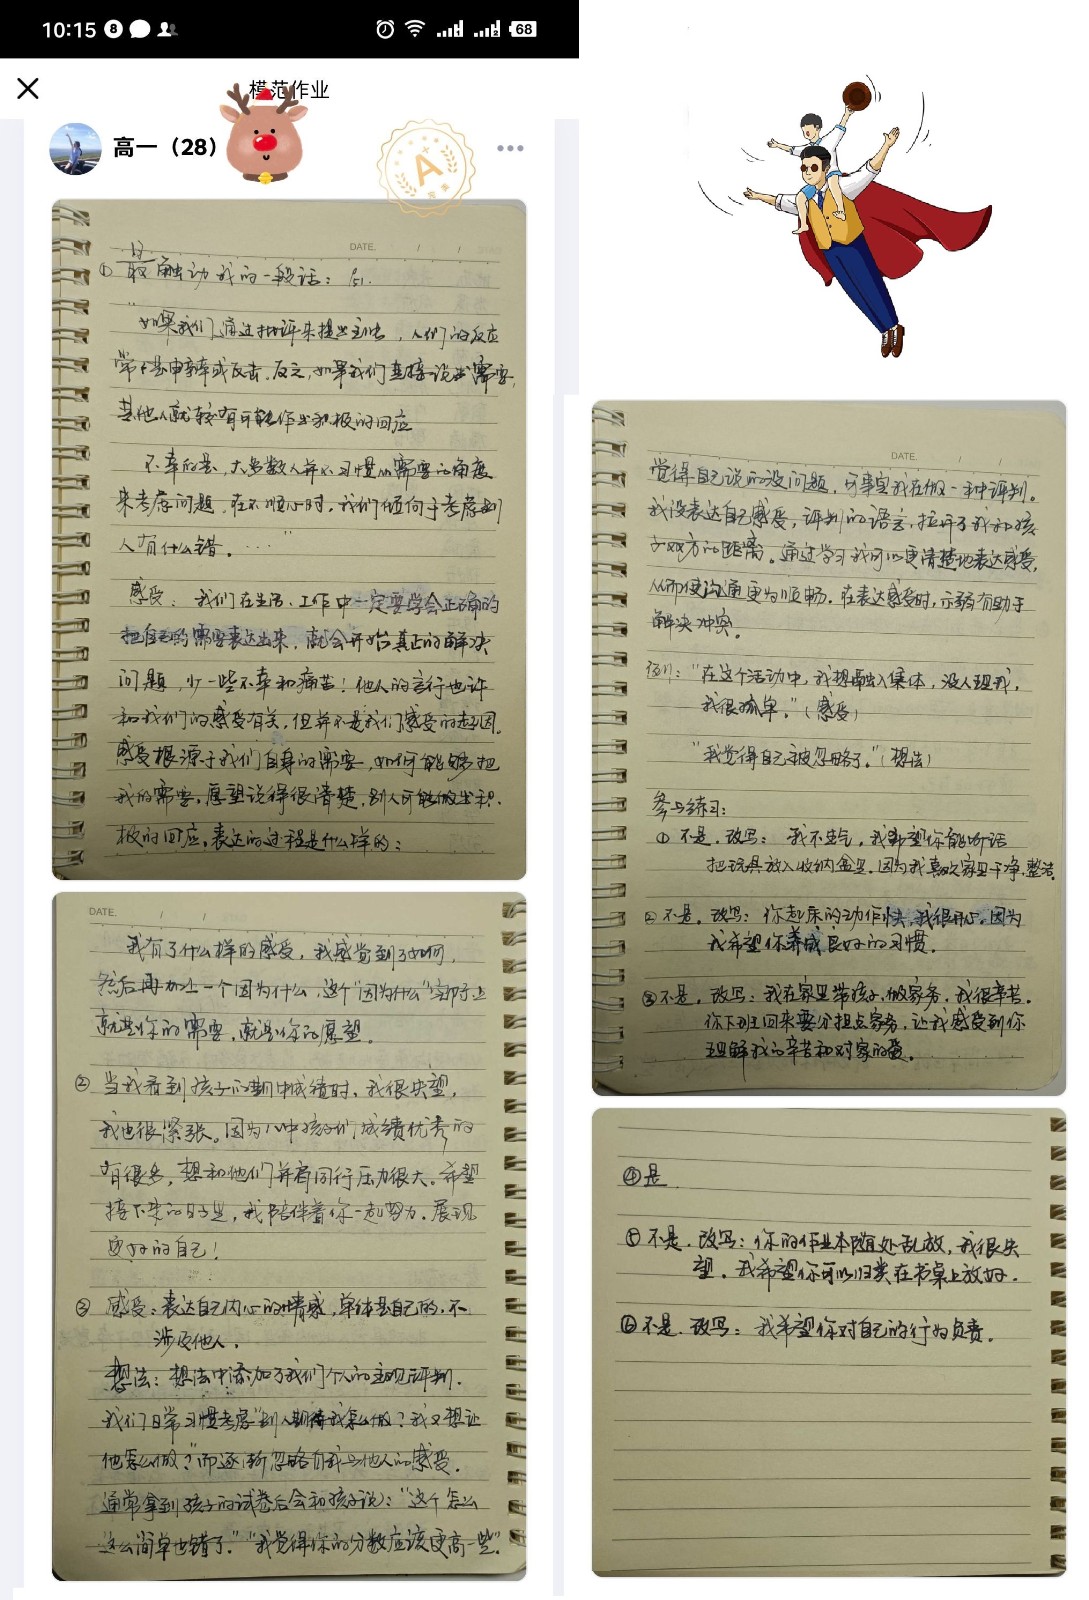 10:15
68
模范作业
高一（28）
A
DATE. / /
① 最触动我的一段话：
"如果我们通过批评来提出主张，人们的反应
常常是申辩或反击。反之，如果我们直接说出需要，
其他人就较有可能作出积极的回应
不幸的是，大多数人并不习惯从需要的角度
来考虑问题，在不顺心时，我们倾向于考虑别
人有什么错。……"
感受：我们在生活、工作中一定要学会正确的
把自己的需要表达出来，就会开始真正的解决
问题，少一些不幸和痛苦！他人的言行也许
和我们的感受有关，但并不是我们感受的起因。
感受根源于我们自身的需要，如何能够把
我的需要，愿望说得很清楚，别人可能做出积
极的回应，表达的过程是什么样的：
DATE. / /
我有了什么样的感受，我感觉到了如何，
然后再加上一个因为什么，这个"因为什么"实际上
就是你的需要，就是你的愿望。
② 当我看到孩子的期中成绩时，我很失望，
我也很紧张。因为八中孩子们，成绩优秀的
有很多，想和他们并肩同行压力很大。希望
接下来的日子里，我陪伴着你一起努力，展现
更好的自己！
③ 感受：表达自己内心的情感，单体是自己的，不
涉及他人。
想法：想法中添加了我们个人的主观评判。
我们日常习惯考虑"别人期待我怎么做？我又想让
他怎么做？"而逐渐忽略自我与他人的感受。
通常拿到孩子的试卷后会和孩子说："这个怎么
这么简单也错了。""我觉得你的分数应该更高一些"。
DATE. / /
觉得自己说的没问题，可事实我在做一种评判。
我没表达自己感受，评判的语言，拉开了我和孩
子双方的距离。通过学习我可以更清楚地表达感受，
从而使沟通更为顺畅。在表达感受时，示弱有助于
解决冲突。
例："在这个活动中，我想融入集体，没人理我，
我很孤单。"（感受）
"我觉得自己被忽略了。"（想法）
参与练习：
① 不是。改写：我不生气，我希望你能听话
把玩具放入收纳盒里。因为我喜欢家里干净，整洁。
② 不是。改写：你起床的动作快，我很开心，因为
我希望你养成良好的习惯。
③ 不是。改写：我在家里带孩子，做家务，我很辛苦。
你下班回来要分担点家务，让我感受到你
理解我的辛苦和对家的爱。
④ 是
⑤ 不是。改写：你的作业本随处乱放，我很失
望。我希望你可以归类在书桌上放好。
⑥ 不是。改写：我希望你对自己的行为负责。